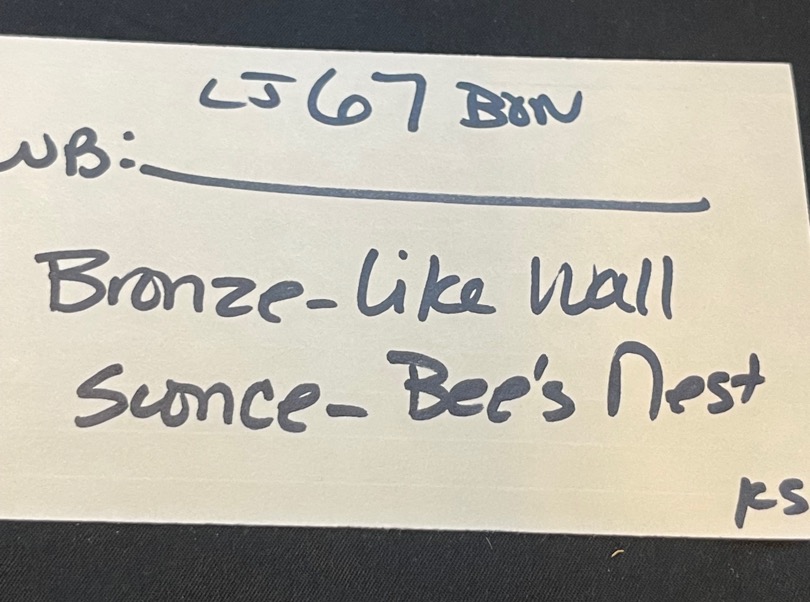 LJ 67 BON
WB:
Bronze-Like Wall
Sconce- Bee's Nest
KS